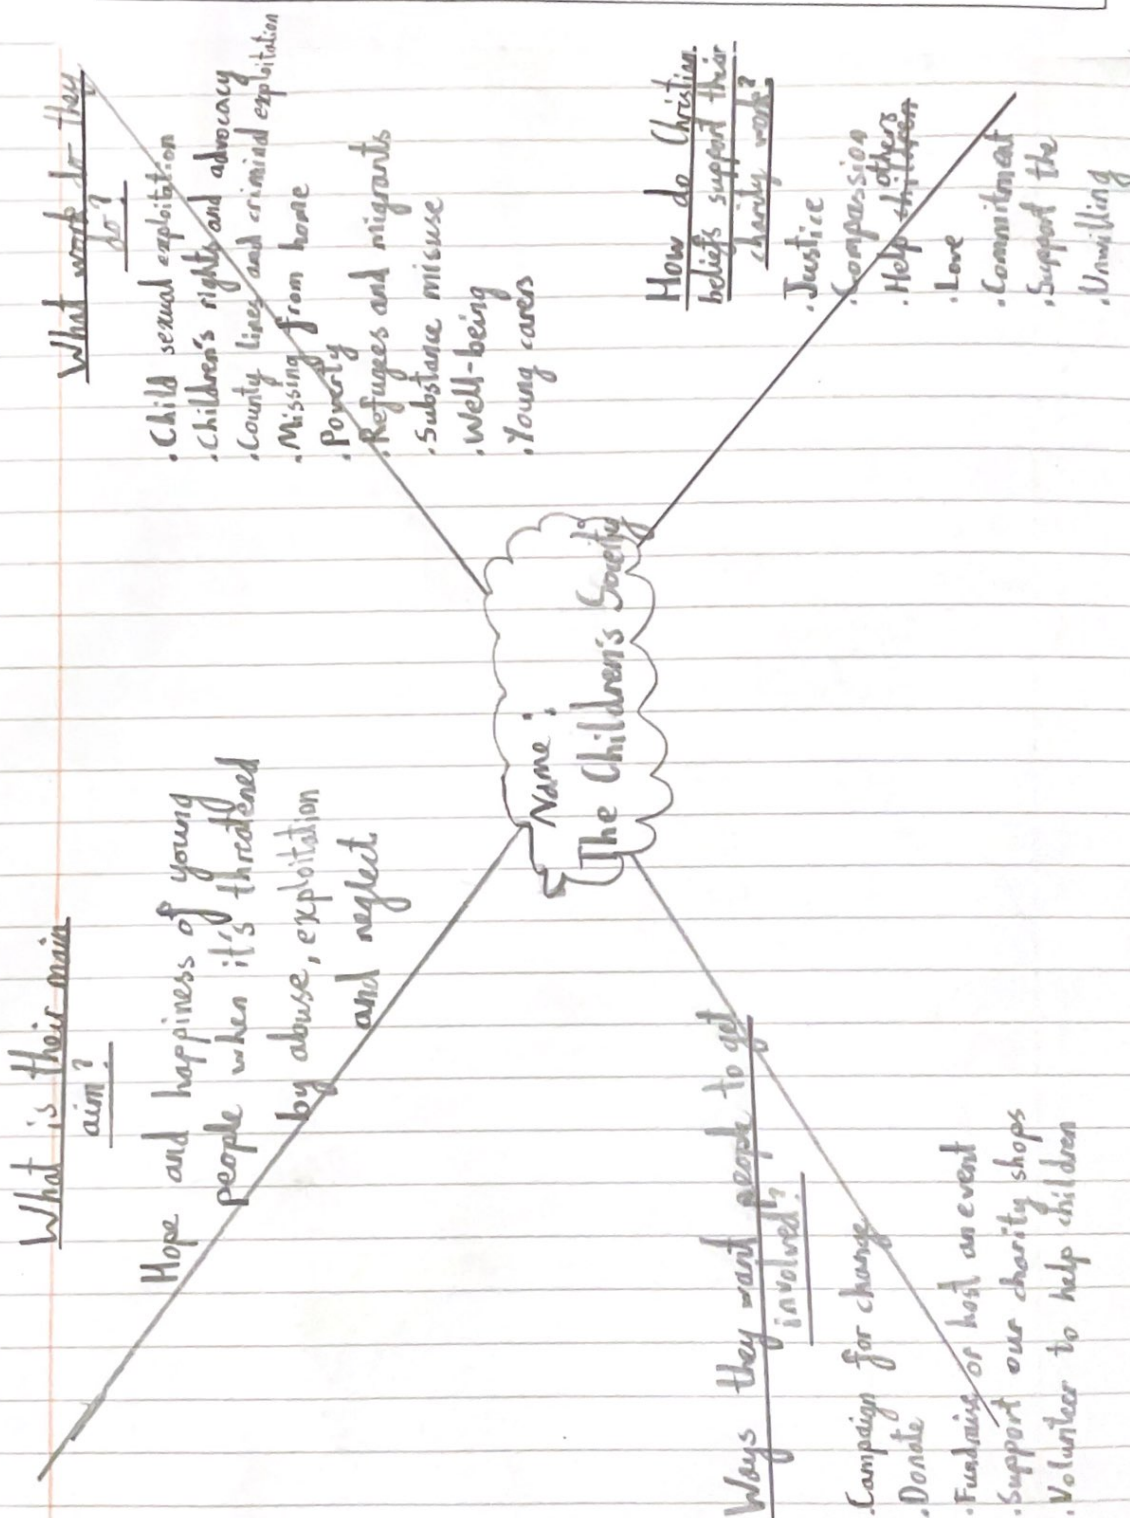 What is their main
aim?
Hope and happiness of young
people when it's threatened
by abuse, exploitation
and neglect
What work do they
do?
.Child sexual exploitation
.Children's rights and advocacy
.County lines and criminal exploitation
.Missing from home
.Poverty
.Refugees and migrants
.Substance misuse
.Well-being
.Young carers
Name:
The Children's Soceity
Ways they want people to get
involved?
.Campaign for change
.Donate
.Fundraise or host an event
.Support our charity shops
.Volunteer to help children
How do Christian
beliefs support their
charity work?
.Justice
.Compassion
.Help children others
.Love
.Commitment
.Support the
.Unwilling